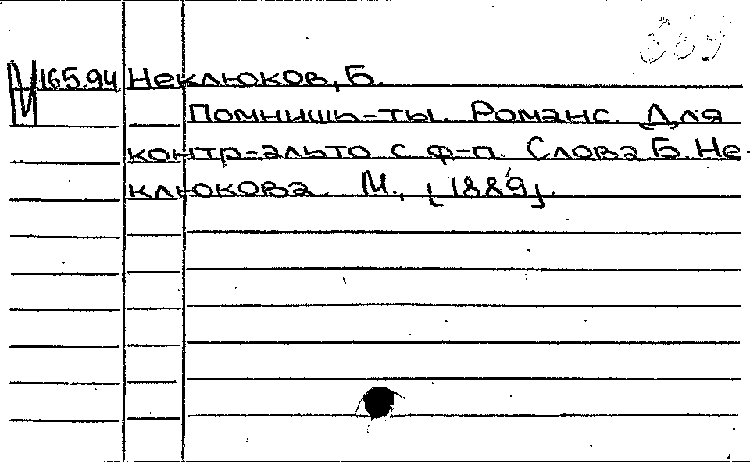 389
М 165.94 Неклюков, Б.
Помнишь-ты. Романс. Для
контр-альто с ф-п. Слова Б. Не-
клюкова. М., [1889].